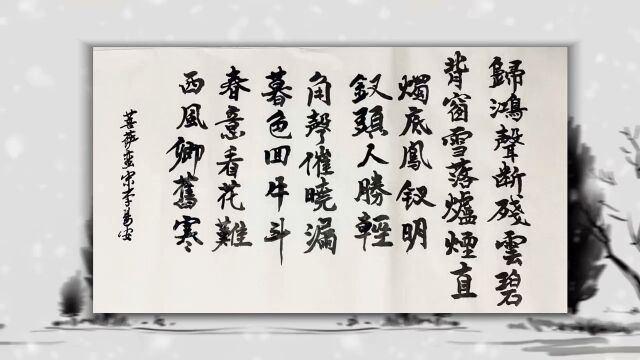 歸鴻聲断殘雲碧
背窗雪落爐煙直
燭底鳳釵明
釵頭人勝輕
角聲催曉漏
暮色回牛斗
春意看花難
西風卿舊寒
菩薩蛮宋李易安